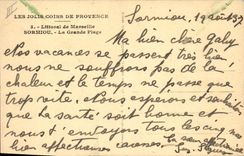 LES JOLIS COINS DE PROVENCE
3. - Littoral de Marseille
SORMIOU. - La Grande Plage
Sormiou, 19 août 37
Ma bien chère Gaby
Nos vacances se passent très bien
nous ne souffrons pas de la
chaleur et le temps ne passe que
trop vite. Nous espérons et souhaitons
que la santé soit bonne et
nous t'envoyons tous les cinq nos
bien affectueuses caresses.